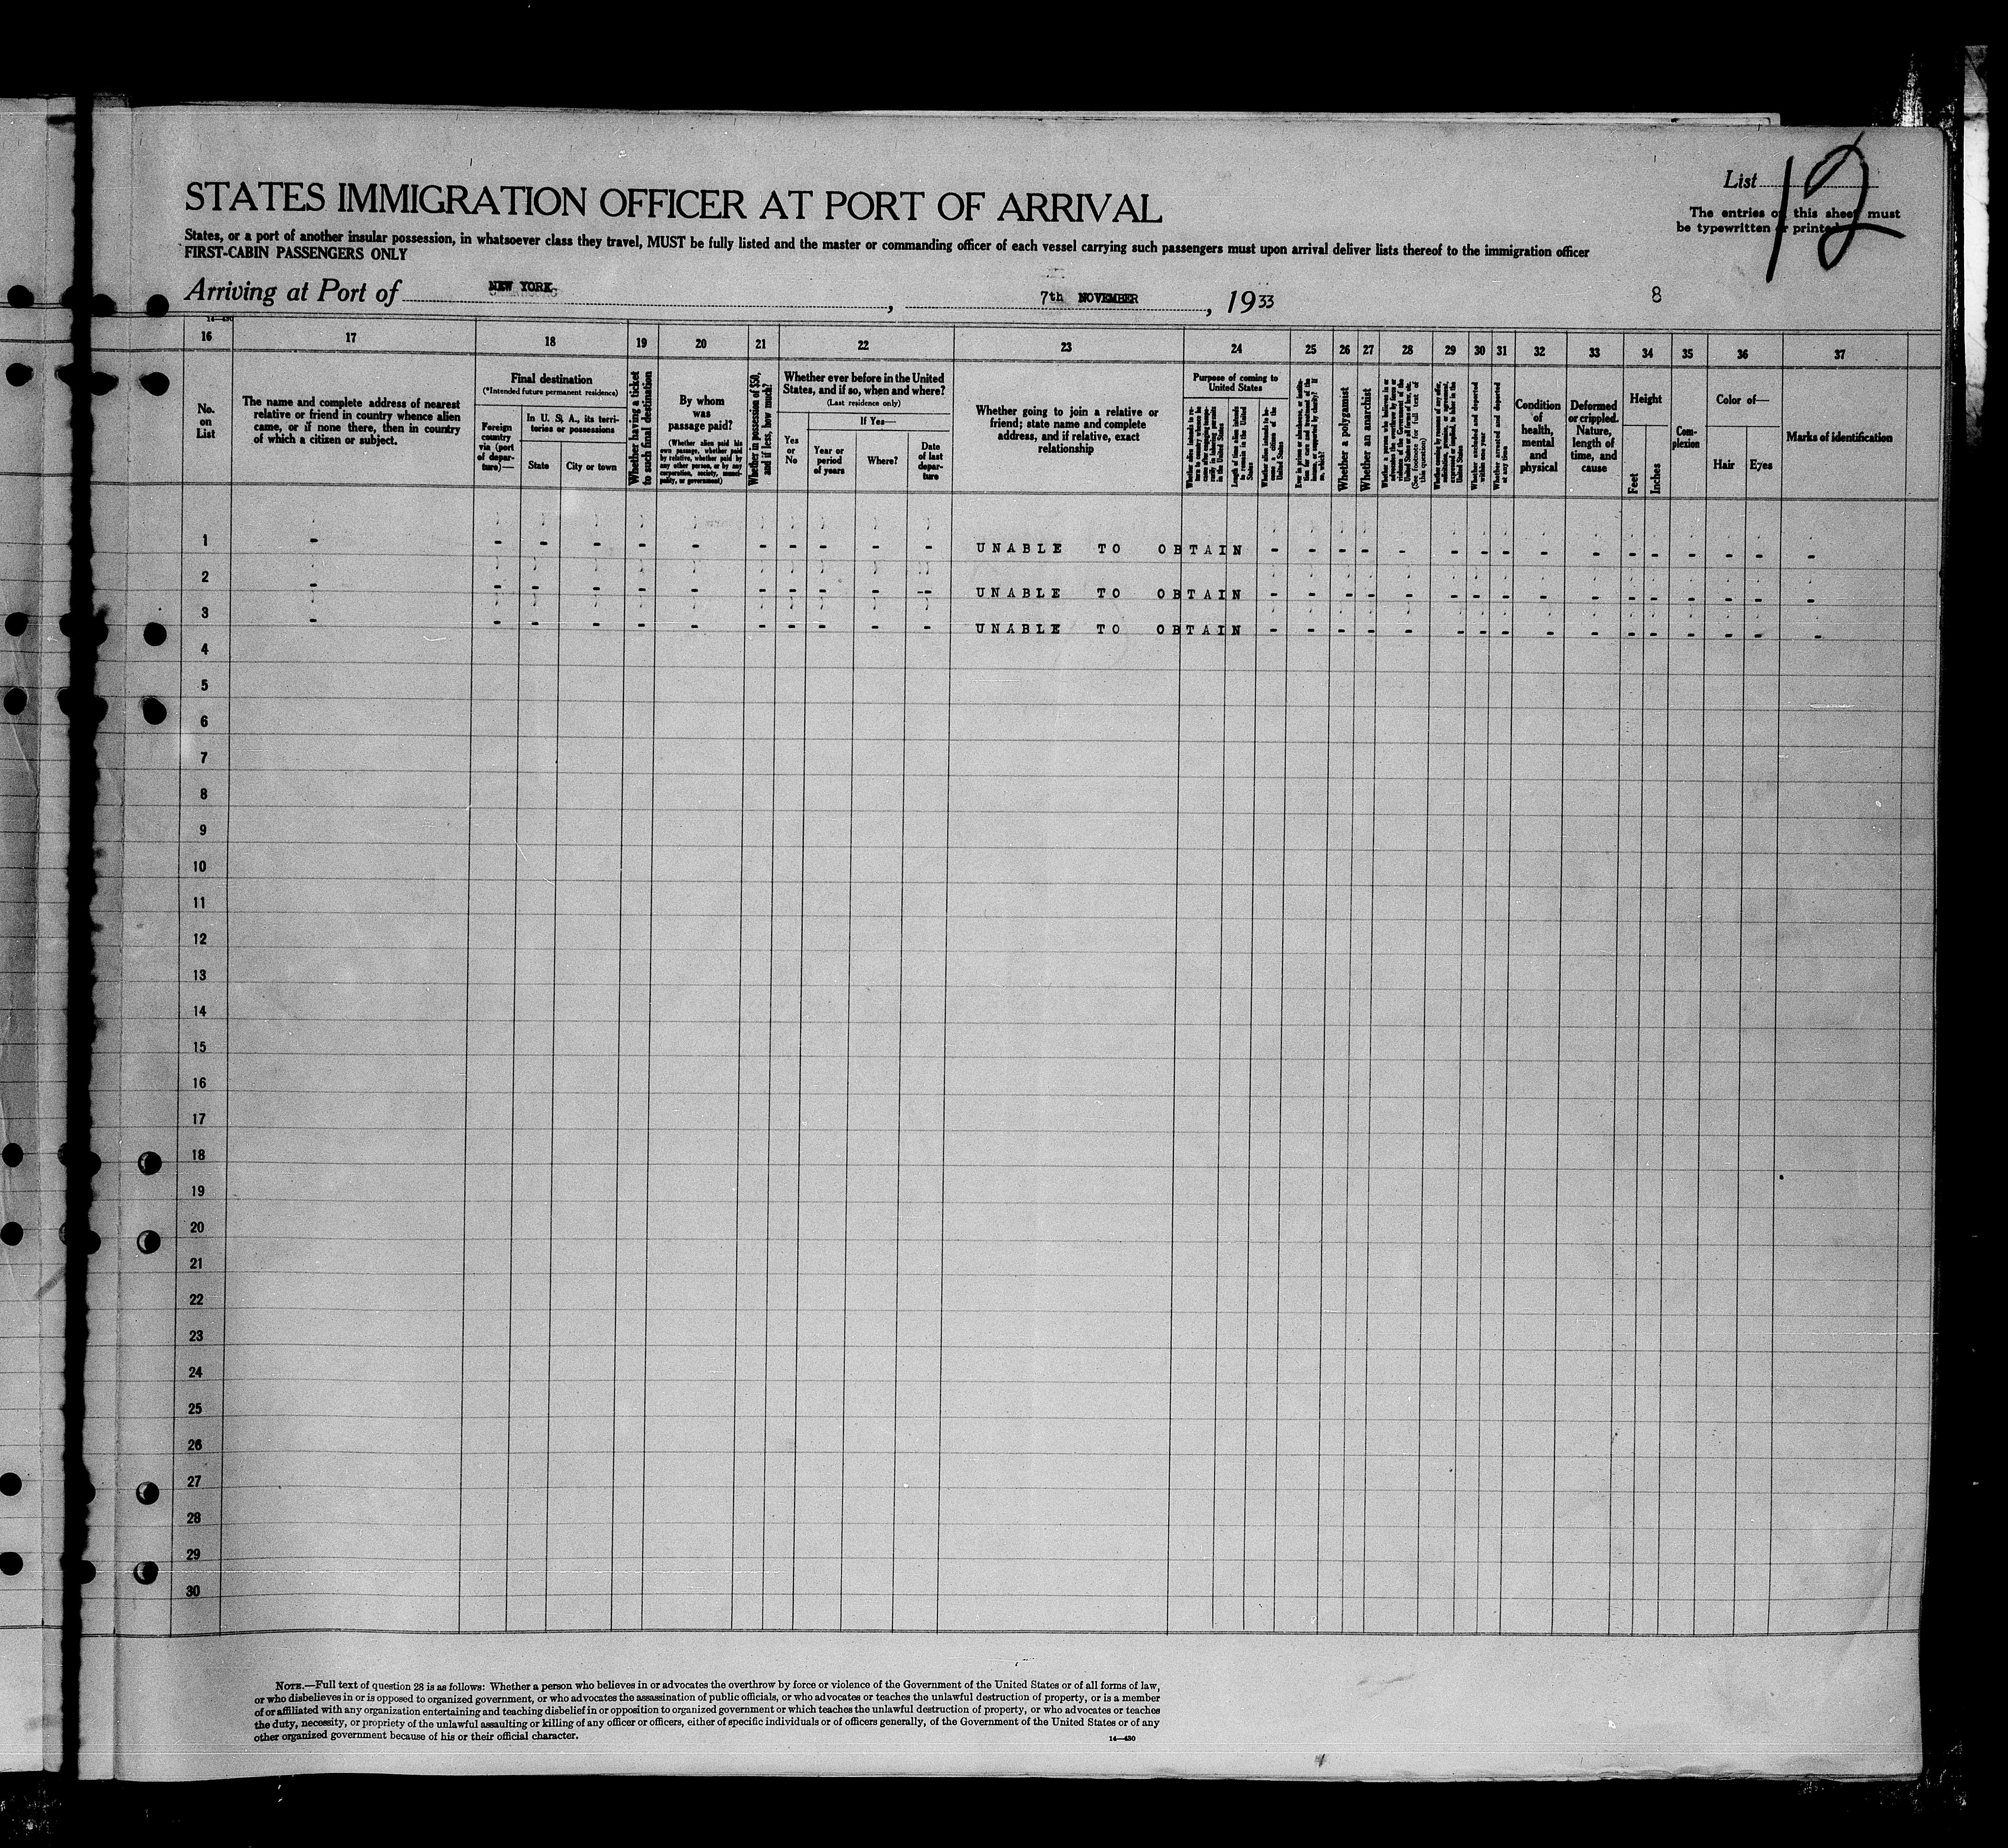 List 12
The entries on this sheet must
be typewritten or printed
STATES IMMIGRATION OFFICER AT PORT OF ARRIVAL
States, or a port of another insular possession, in whatsoever class they travel, MUST be fully listed and the master or commanding officer of each vessel carrying such passengers must upon arrival deliver lists thereof to the immigration officer
FIRST-CABIN PASSENGERS ONLY
Arriving at Port of NEW YORK, 7th NOVEMBER, 1933
8
14—430
16 17 18 19 20 21 22 23 24 25 26 27 28 29 30 31 32 33 34 35 36 37
No.
on
List
The name and complete address of nearest
relative or friend in country whence alien
came, or if none there, then in country
of which a citizen or subject.
Final destination
(*Intended future permanent residence)
Foreign
country
via (port
of depar-
ture)—
In U. S. A., its terri-
tories or possessions
State
City or town
Whether having a ticket
to such final destination
By whom
was
passage paid?
(Whether alien paid his
own passage, whether paid
by relative, whether paid by
any other person, or by any
corporation, society, munici-
pality, or government)
Whether in possession of $50,
and if less, how much?
Whether ever before in the United
States, and if so, when and where?
(Last residence only)
Yes
or
No
If Yes—
Year or
period
of years
Where?
Date
of last
depar-
ture
Whether going to join a relative or
friend; state name and complete
address, and if relative, exact
relationship
Purpose of coming to
United States
Length of time alien intends
to remain in the United
States
Whether alien intends to be-
come a citizen of the
United States
Whether a polygamist
Whether an anarchist
(See footnote for full text of
this question)
Whether excluded and deported
within one year
Whether arrested and deported
at any time
Condition
of
health,
mental
and
physical
Deformed
or crippled.
Nature,
length of
time, and
cause
Height
Feet
Inches
Com-
plexion
Color of—
Hair
Eyes
Marks of identification
1 - - - - - - - - - - - UNABLE TO OBTAIN - - - - - - - - - - - - - - - -
2 - - - - - - - - - - -- UNABLE TO OBTAIN - - - - - - - - - - - - - - - -
3 - - - - - - - - - - - UNABLE TO OBTAIN - - - - - - - - - - - - - - - -
4
5
6
7
8
9
10
11
12
13
14
15
16
17
18
19
20
21
22
23
24
25
26
27
28
29
30
NOTE.—Full text of question 28 is as follows: Whether a person who believes in or advocates the overthrow by force or violence of the Government of the United States or of all forms of law,
or who disbelieves in or is opposed to organized government, or who advocates the assassination of public officials, or who advocates or teaches the unlawful destruction of property, or is a member
of or affiliated with any organization entertaining and teaching disbelief in or opposition to organized government or which teaches the unlawful destruction of property, or who advocates or teaches
the duty, necessity, or propriety of the unlawful assaulting or killing of any officer or officers, either of specific individuals or of officers generally, of the Government of the United States or of any
other organized government because of his or their official character.
14—430